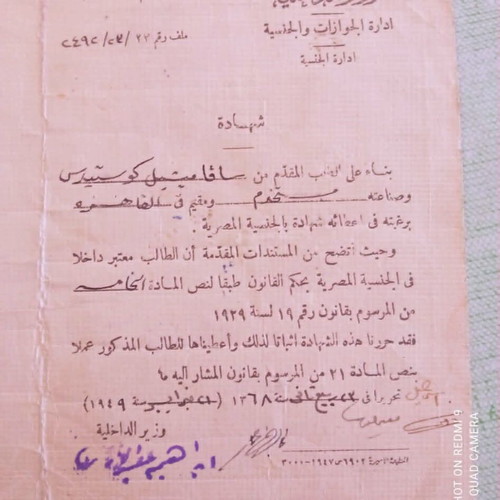 ادارة الجوازات والجنسية
ادارة الجنسية
ملف رقم ٢٧/٢٣/٢٤٩٢
شهادة
بناء على الطلب المقدّم من ساڤا ميتيل كوستيدس
وصناعته مستخدم ومقيم في القاهرة
برغبته في اعطائه شهادة بالجنسية المصرية .
وحيث اتضح من المستندات المقدّمة أن الطالب معتبر داخلا
في الجنسية المصرية بحكم القانون طبقا لنص المادة الخامسة
من المرسوم بقانون رقم ١٩ لسنة ١٩٢٩
فقد حررنا هذه الشهادة اثباتا لذلك وأعطيناها للطالب المذكور عملا
بنص المادة ٢١ من المرسوم بقانون المشار اليه
تحريرا في ٢٣ ربيع الآخر سنة ١٣٦٨ (٢١ فبراير سنة ١٩٤٩)
وزير الداخلية
ابراهيم عبد الهادى
٦٩٠٢ س ١٩٤٧-٣٠٠٠
SHOT ON REDMI 9
QUAD CAMERA